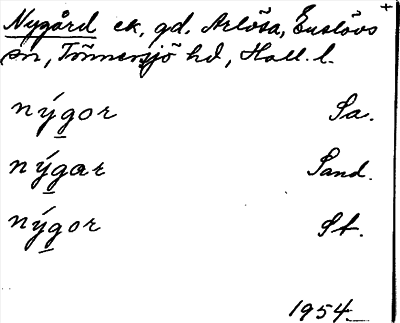 Nygård ek. gd. Arlösa, Enslövs
sn, Tönnersjö hd, Hall. l.
nýgor Sa.
nýgar Sand.
nýgor St.
1954